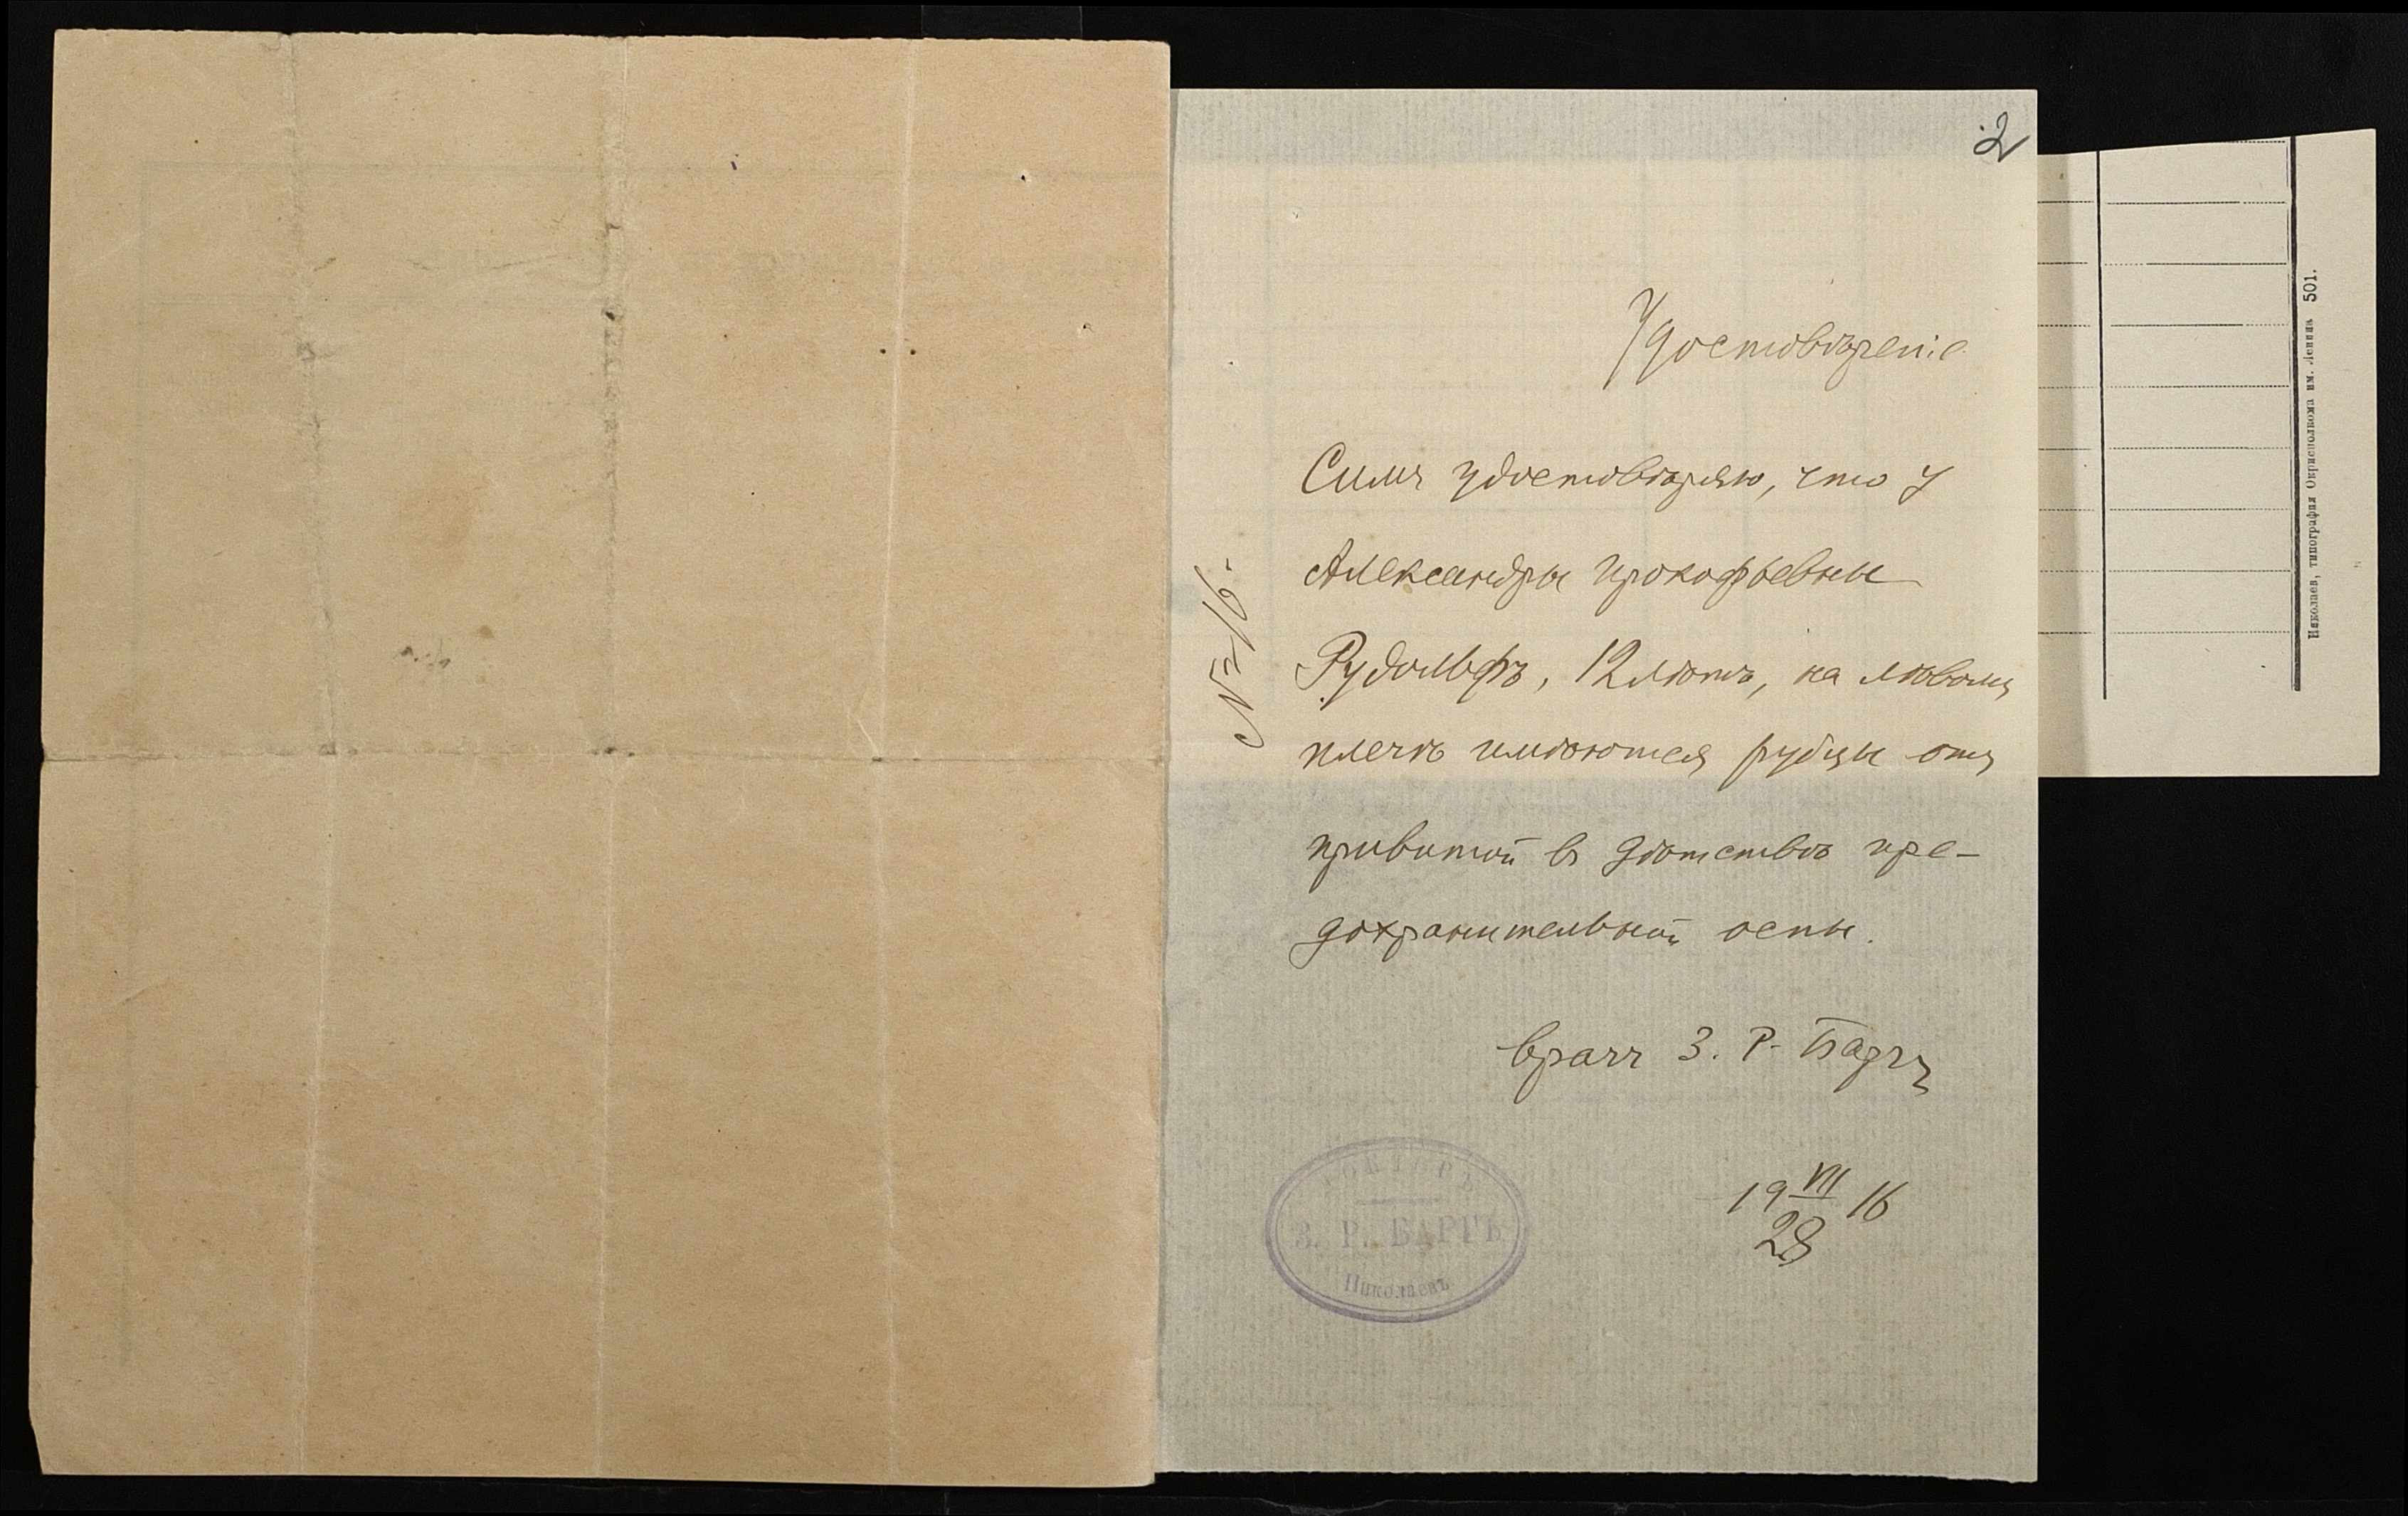 2
Удостовѣреніе
Симъ удостовѣряю, что у
Александры Прокофьевны
Рудольфъ, 12 лѣтъ, на лѣвомъ
плечѣ имѣются рубцы отъ
привитой въ дѣтствѣ пре-
дохранительной оспы.
врачъ З. Р. Баргъ
19 VII 16
28
№ 216.
ДОКТОРЪ
З. Р. БАРГЪ
Николаевъ
Николаев, типография Окрисполкома им. Ленина 501.